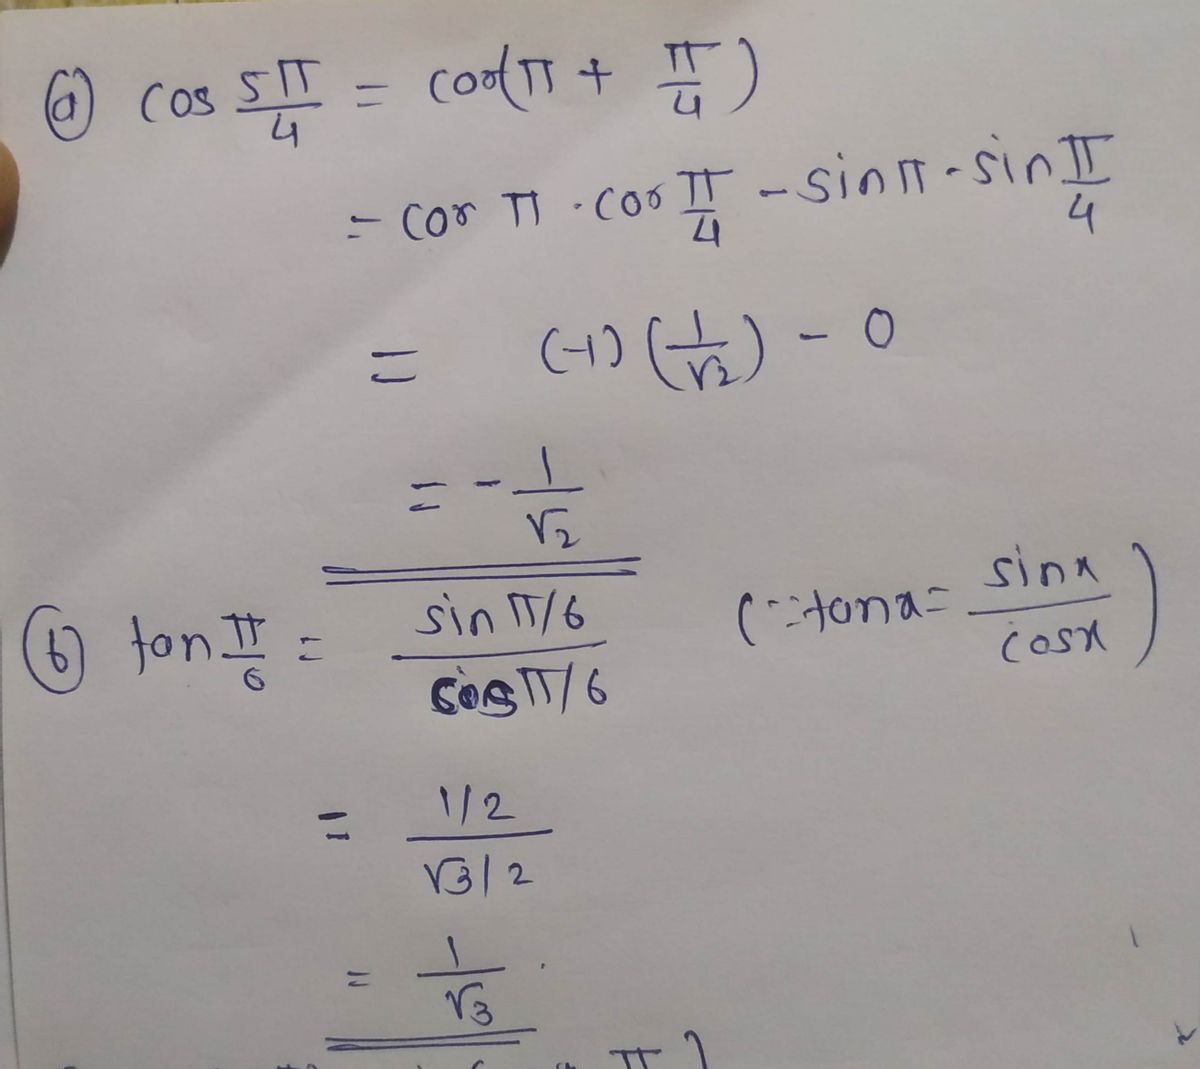 (a) cos 5π/4 = cos(π + π/4)
= cos π · cos π/4 - sin π · sin π/4
= (-1) (1/√2) - 0
= - 1/√2
(b) tan π/6 = sin π/6 / cos π/6 (∵ tan x = sin x / cos x)
= 1/2 / √3/2
= 1/√3 .
π )